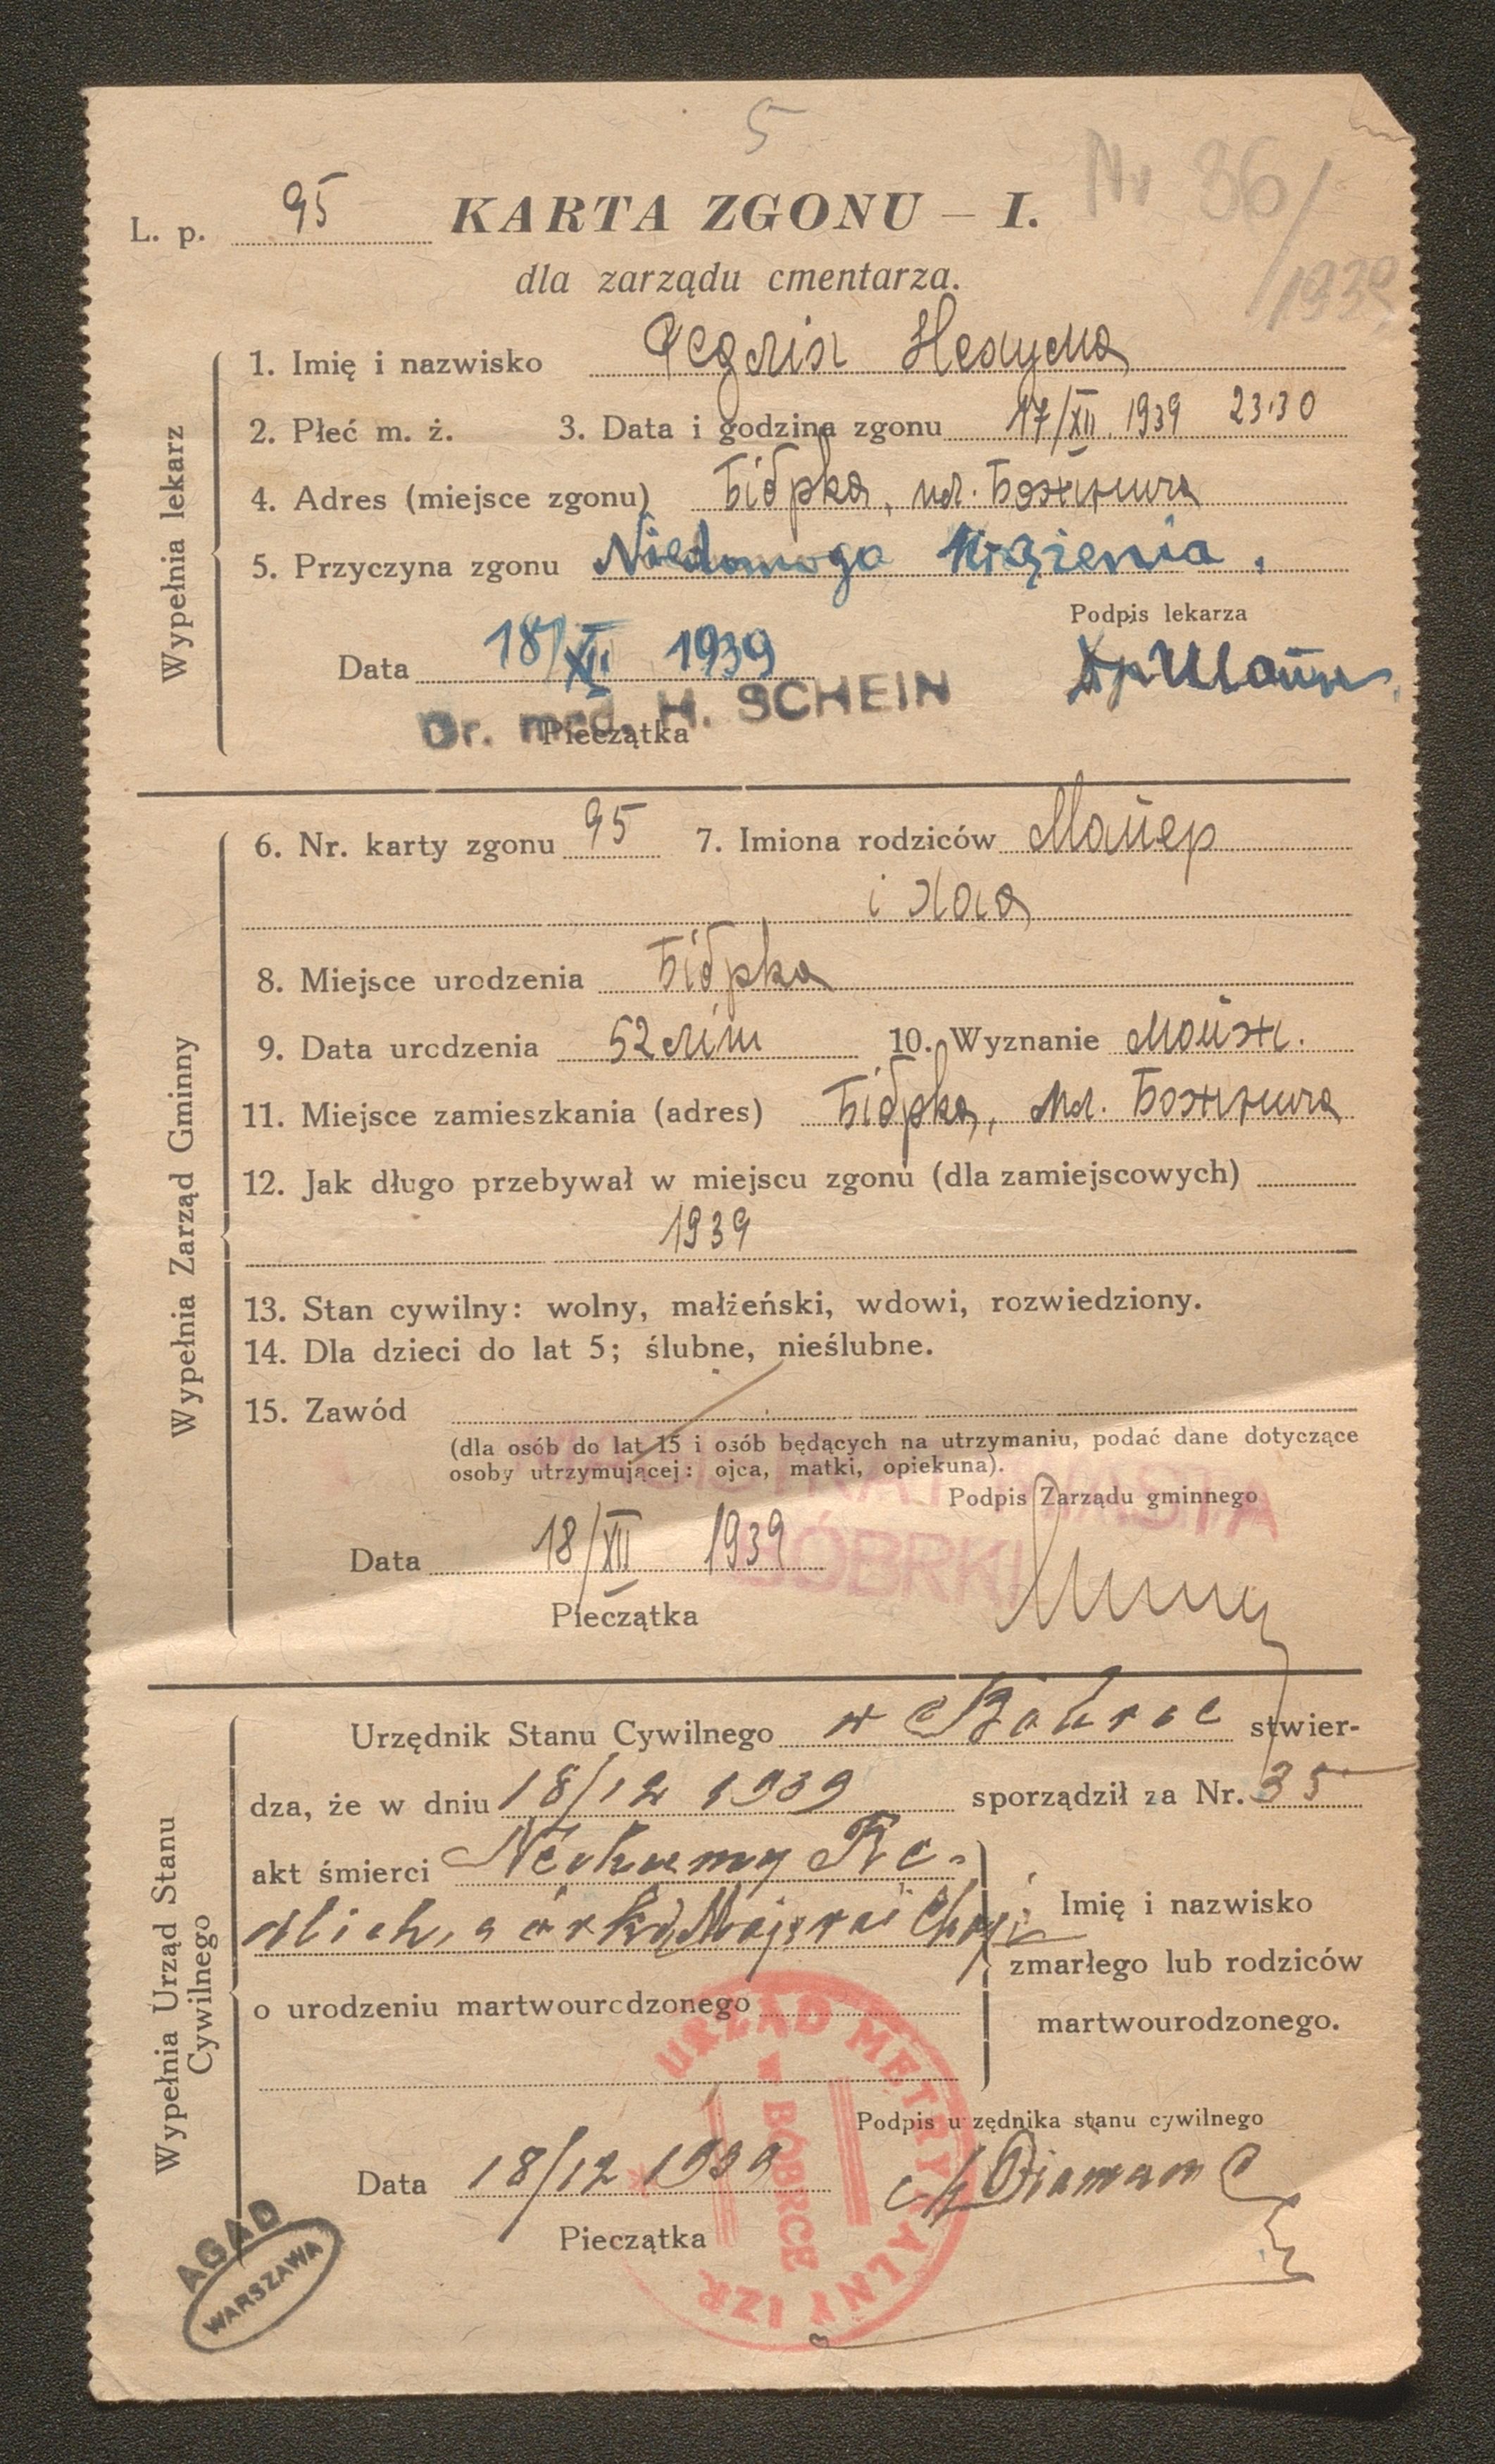 5
Nr 36/1939
L. p. 95 KARTA ZGONU – I.
dla zarządu cmentarza.
Wypełnia lekarz
1. Imię i nazwisko Редліх Нехума
2. Płeć m. ż. 3. Data i godzina zgonu 17/XII. 1939 23·30
4. Adres (miejsce zgonu) Бібрка, пл. Божнича
5. Przyczyna zgonu Niedomoga krążenia.
Podpis lekarza
Data 18/XII 1939 Др Шайн
Dr. med. H. SCHEIN
Pieczątka
Wypełnia Zarząd Gminny
6. Nr. karty zgonu 95 7. Imiona rodziców Майер
і Хая
8. Miejsce urodzenia Бібрка
9. Data urodzenia 52 літ 10. Wyznanie Мойж.
11. Miejsce zamieszkania (adres) Бібрка, пл. Божнича
12. Jak długo przebywał w miejscu zgonu (dla zamiejscowych)
1939
13. Stan cywilny: wolny, małżeński, wdowi, rozwiedziony.
14. Dla dzieci do lat 5; ślubne, nieślubne.
15. Zawód
(dla osób do lat 15 i osób będących na utrzymaniu, podać dane dotyczące
osoby utrzymującej: ojca, matki, opiekuna).
MAGISTRAT MIASTA
BÓBRKI
Podpis Zarządu gminnego
Data 18/XII 1939
Pieczątka
Wypełnia Urząd Stanu
Cywilnego
Urzędnik Stanu Cywilnego w Bóbrce stwier-
dza, że w dniu 18/12 1939 sporządził za Nr. 35
akt śmierci Nechumy Re-
dlich, córki Majera i Chaji
Imię i nazwisko
zmarłego lub rodziców
martwourodzonego.
o urodzeniu martwourodzonego
Podpis urzędnika stanu cywilnego
Data 18/12 1939 Diamant
Pieczątka
URZĄD METRYKALNY IZR.
w BÓBRCE
AGAD
WARSZAWA